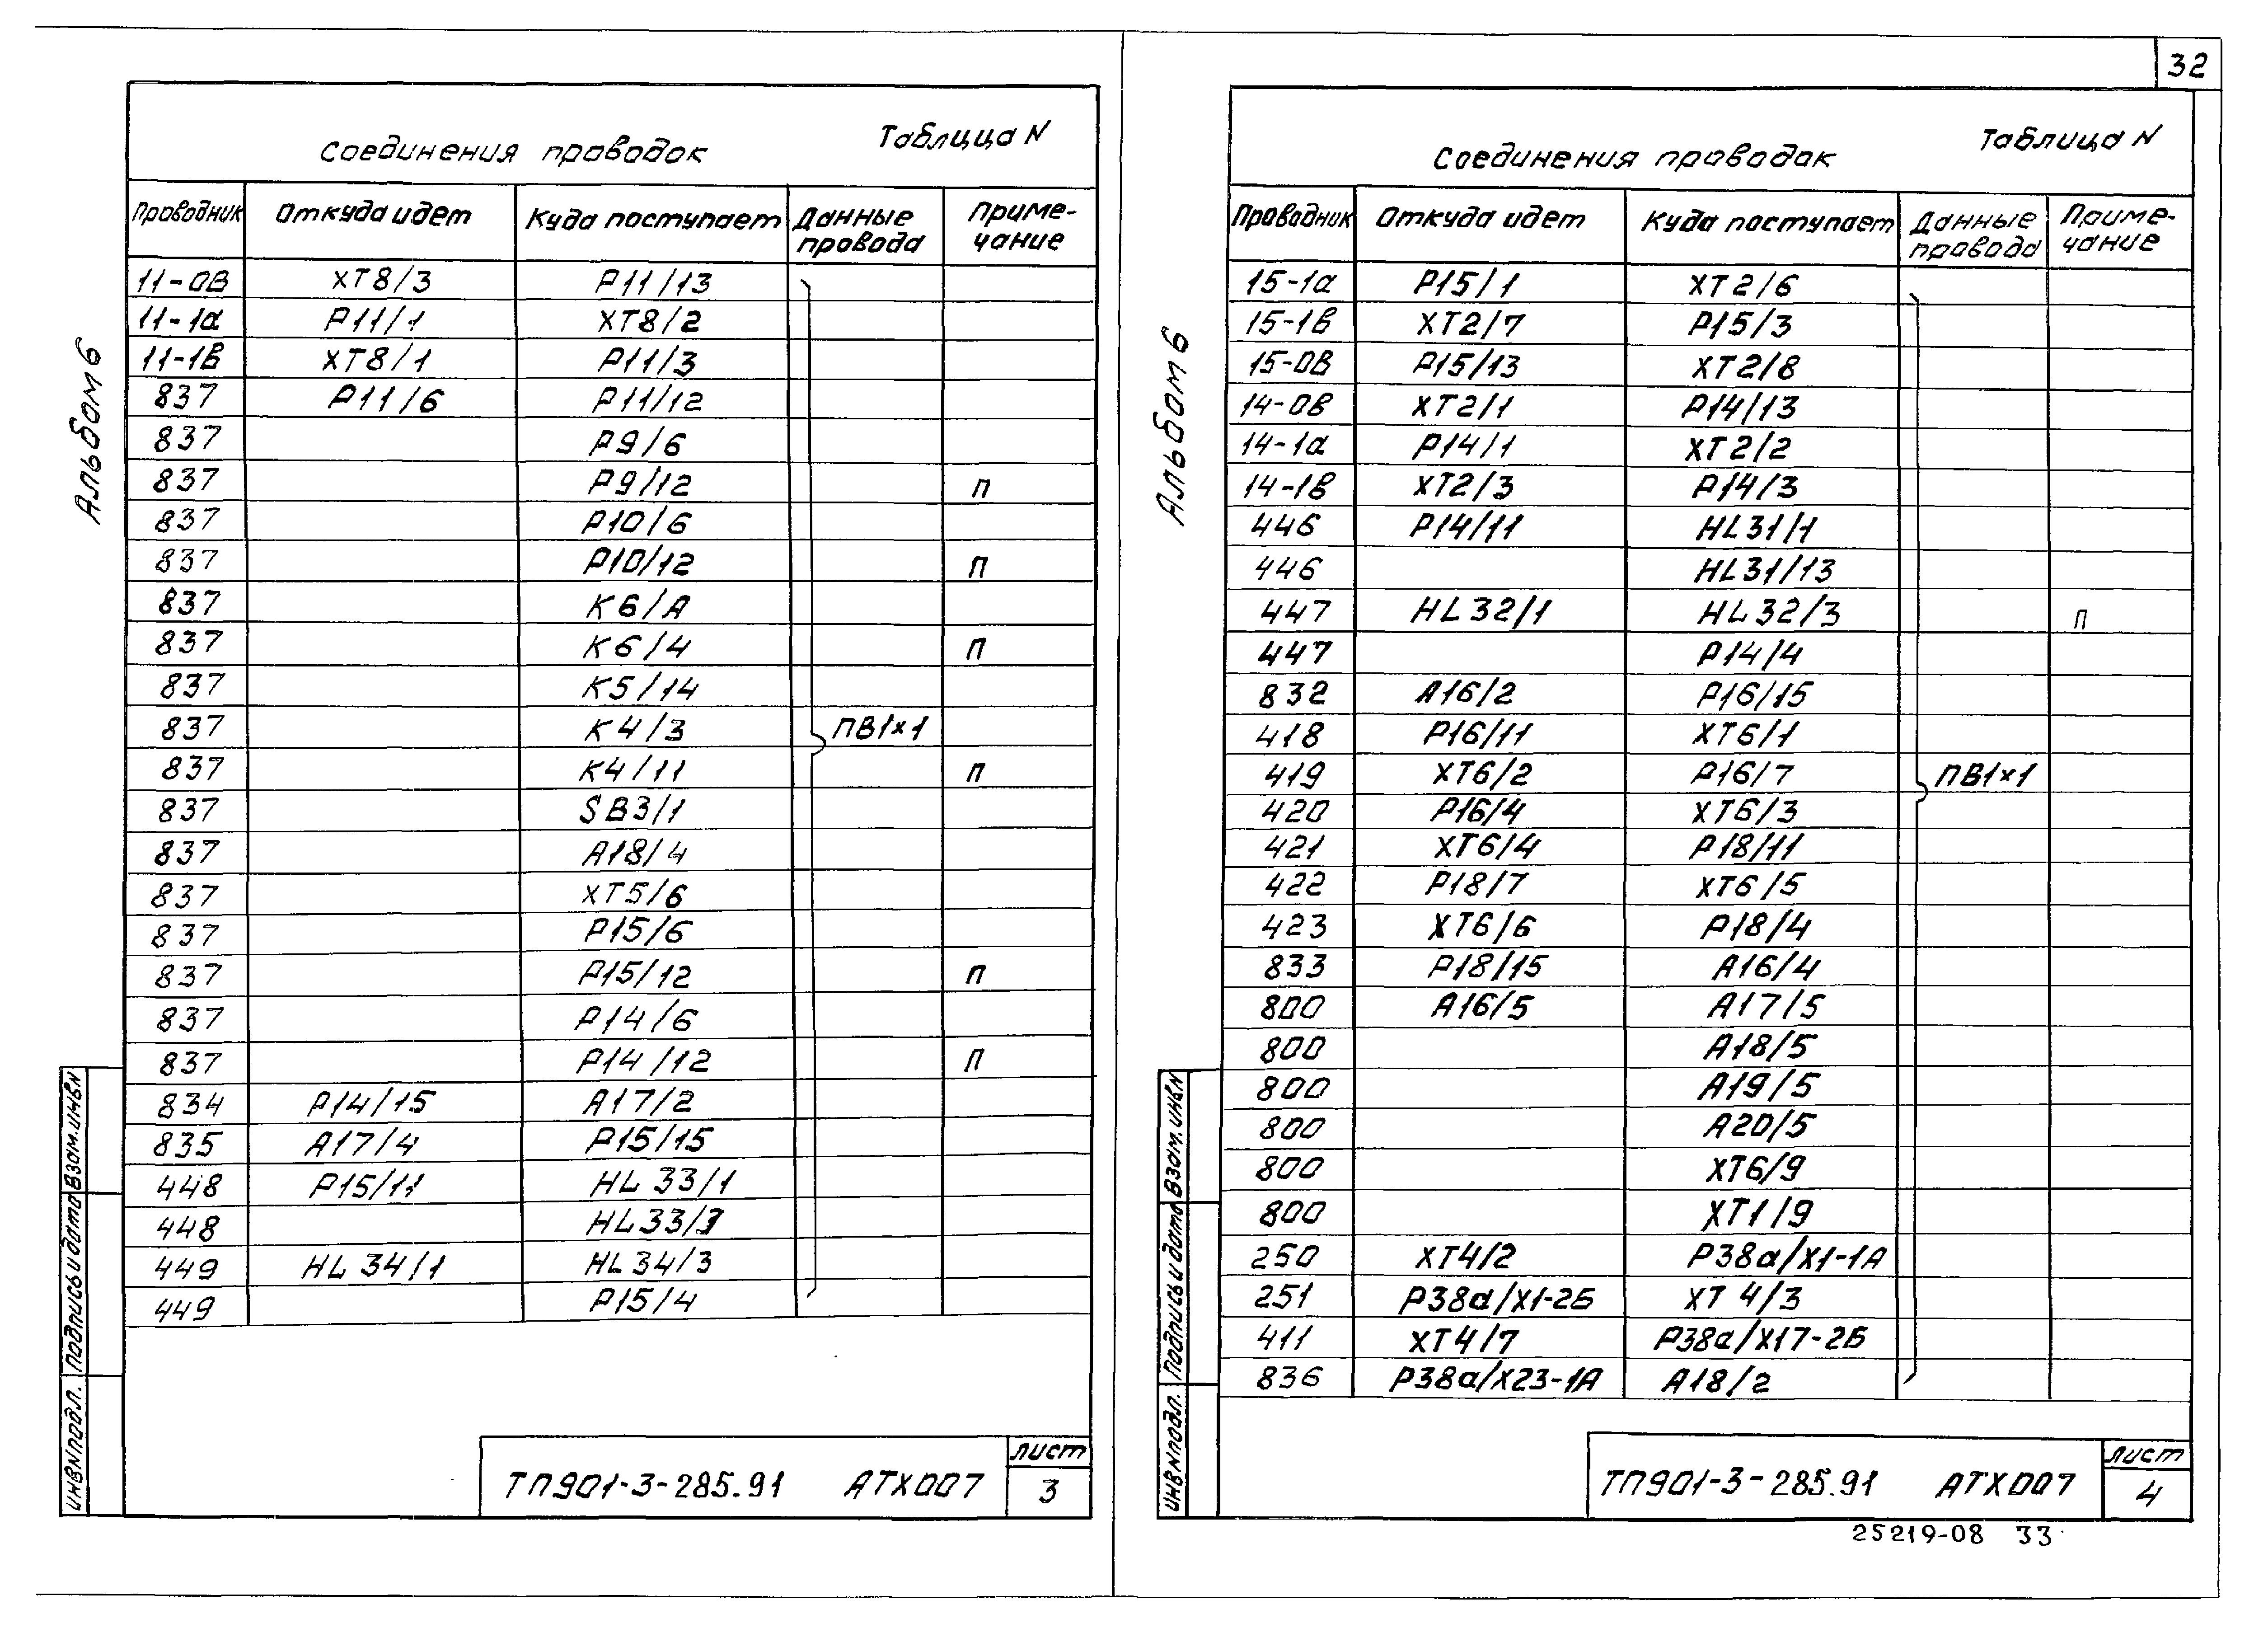 32
Альбом 6
Соединения проводок Таблица N
Проводник Откуда идет Куда поступает Данные провода Приме-чание
11-0В ХТ8/3 Р11/13
11-1а Р11/1 ХТ8/2
11-1в ХТ8/1 Р11/3
837 Р11/6 Р11/12
837 Р9/6
837 Р9/12 П
837 Р10/6
837 Р10/12 П
837 К6/А
837 К6/4 П
837 К5/14
837 К4/3 ПВ1×1
837 К4/11 П
837 SB3/1
837 А18/4
837 ХТ5/6
837 Р15/6
837 Р15/12 П
837 Р14/6
837 Р14/12 П
834 Р14/15 А17/2
835 А17/4 Р15/15
448 Р15/11 HL33/1
448 HL33/3
449 HL34/1 HL34/3
449 Р15/4
ИНВ N подл. Подпись и дата Взам. инв N
ТП901-3-285.91 АТХ007 лист 3
Альбом 6
Соединения проводак Таблица N
Проводник Откуда идет Куда поступает Данные провода Приме-чание
15-1а Р15/1 ХТ2/6
15-1в ХТ2/7 Р15/3
15-0В Р15/13 ХТ2/8
14-0в ХТ2/1 Р14/13
14-1а Р14/1 ХТ2/2
14-1в ХТ2/3 Р14/3
446 Р14/11 HL31/1
446 HL31/13
447 HL32/1 HL32/3 П
447 Р14/4
832 А16/2 Р16/15
418 Р16/11 ХТ6/1
419 ХТ6/2 Р16/7 ПВ1×1
420 Р16/4 ХТ6/3
421 ХТ6/4 Р18/11
422 Р18/7 ХТ6/5
423 ХТ6/6 Р18/4
833 Р18/15 А16/4
800 А16/5 А17/5
800 А18/5
800 А19/5
800 А20/5
800 ХТ6/9
800 ХТ1/9
250 ХТ4/2 Р38а/Х1-1А
251 Р38а/Х1-2Б ХТ4/3
411 ХТ4/7 Р38а/Х17-2Б
836 Р38а/Х23-1А А18/2
ИНВ N подл. Подпись и дата Взам. инв N
ТП901-3-285.91 АТХ007 лист 4
25219-08 33